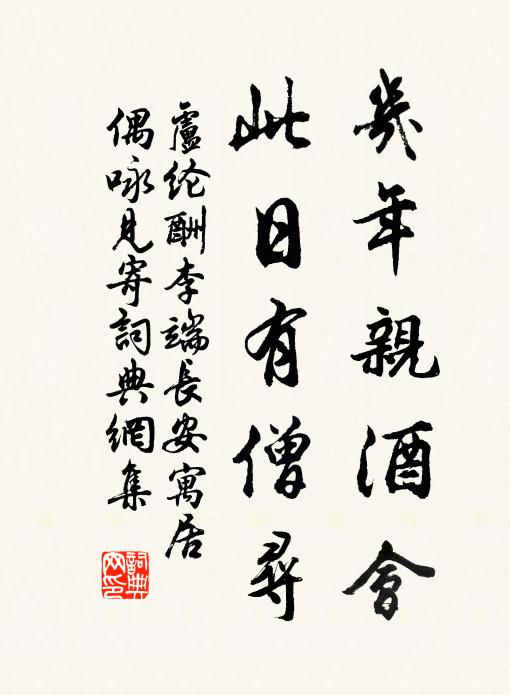 幾年親酒會
此日有僧尋
盧纶酬李端長安寓居
偶咏見寄詞典網集
詞典
网印